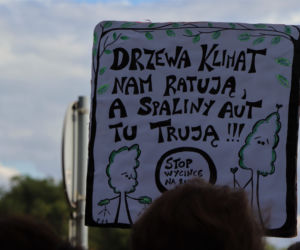 DRZEWA KLIMAT
NAM RATUJĄ,
A SPALINY AUT
TU TRUJĄ !!!
STOP
WYCINCE
NA